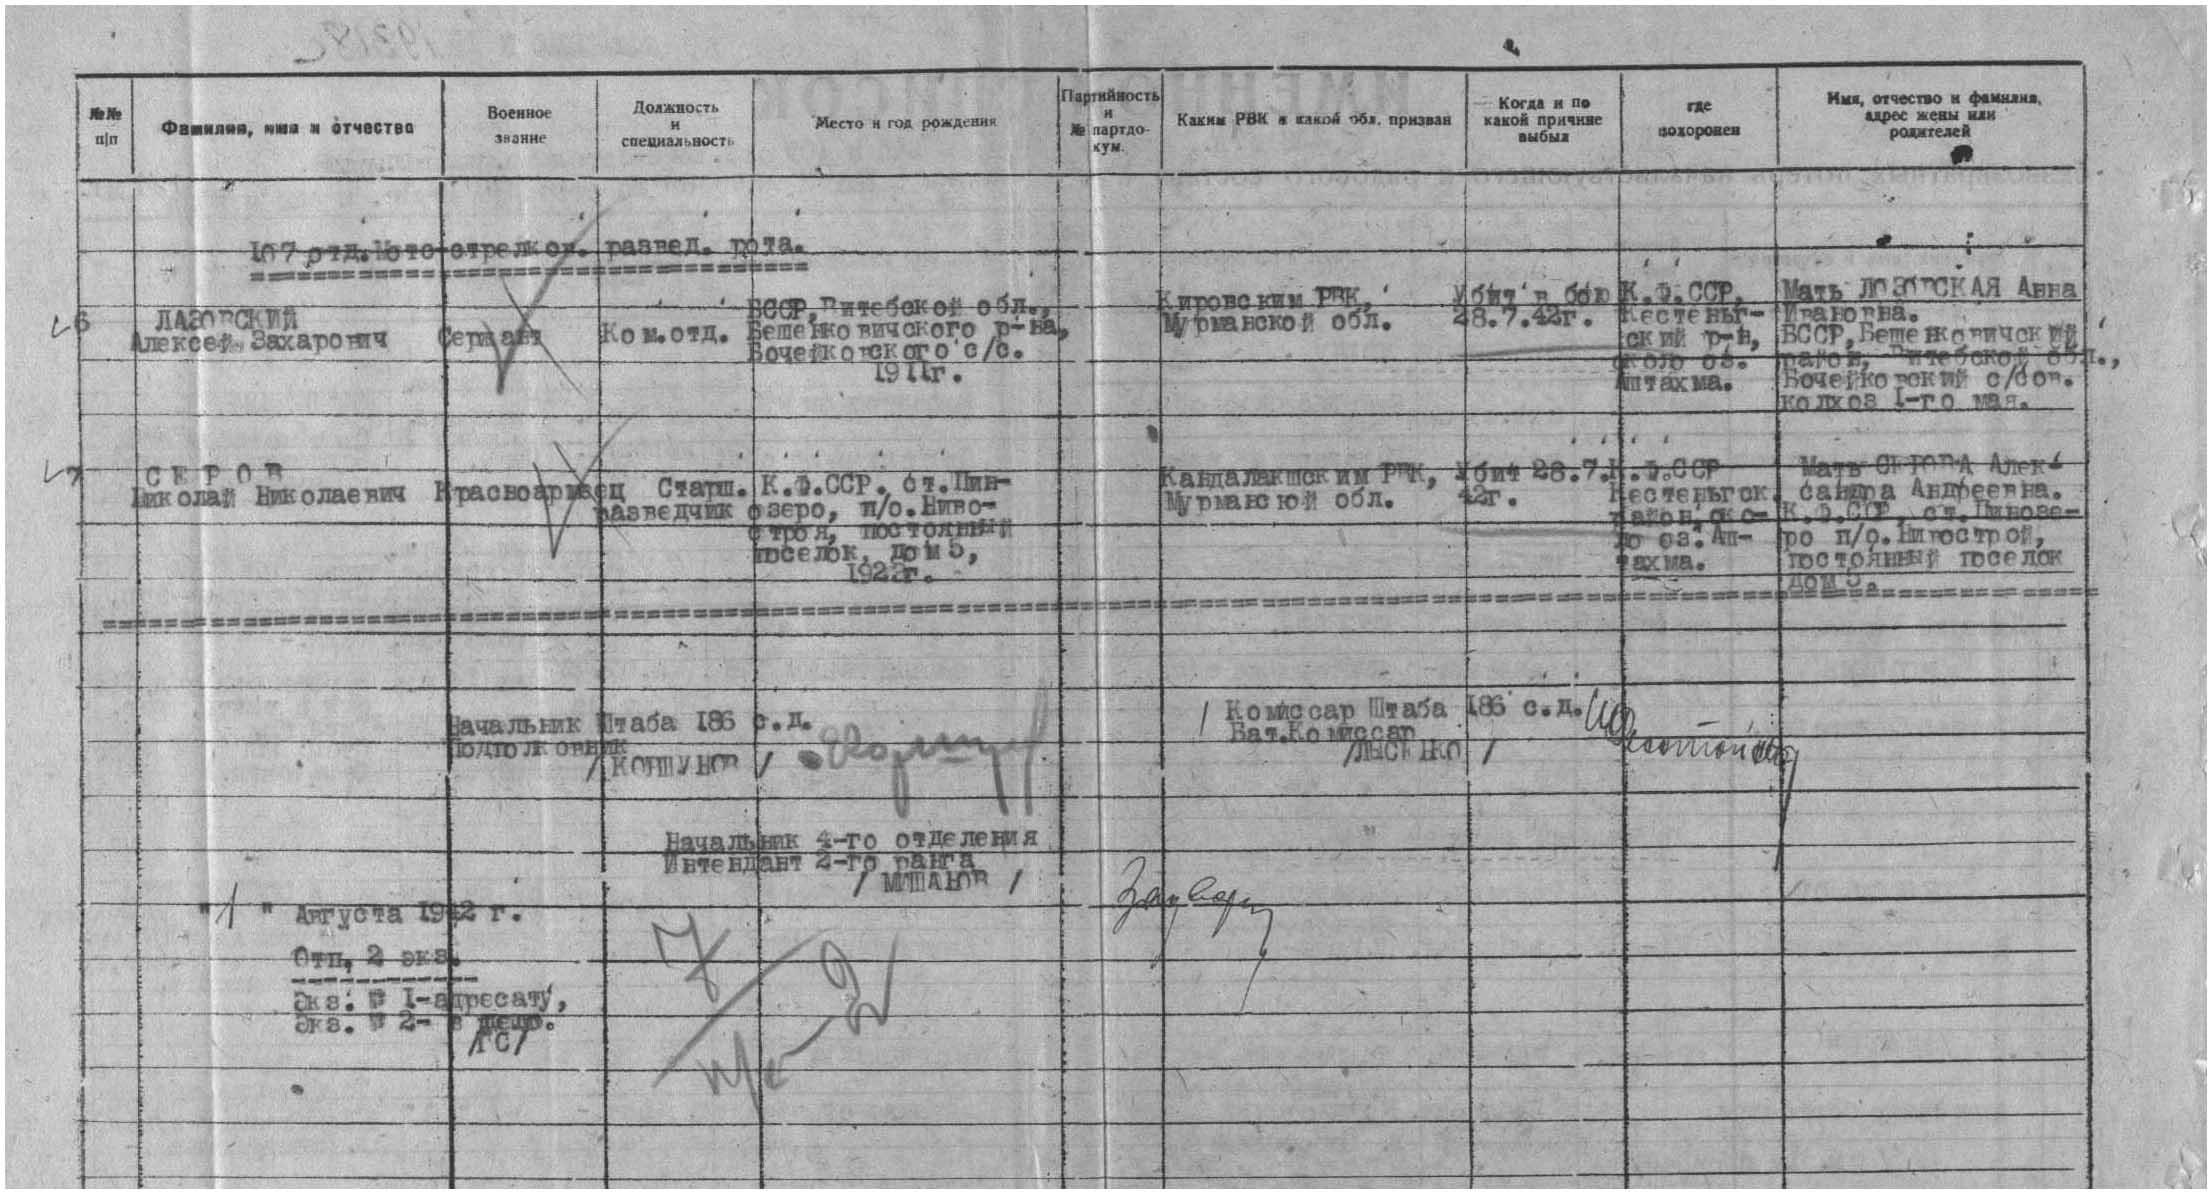 №№ п/п
Фамилия, имя и отчество
Военное звание
Должность и специальность
Место и год рождения
Партийность и № партдокум.
Каким РВК и какой обл. призван
Когда и по какой причине выбыл
где похоронен
Имя, отчество и фамилия, адрес жены или родителей
167 отд.Мото-стрелков. развед. рота.
6
ЛАЗОВСКИЙ
Алексей Захарович
Сержант
Ком.отд.
БССР, Витебской обл.,
Бешенковичского р-на,
Бочейковского с/с.
1911г.
Кировским РВК,
Мурманской обл.
Убит в бою
28.7.42г.
К.Ф.ССР,
Кестеньг-
ский р-н,
около оз.
Аптахма.
Мать ЛОЗОВСКАЯ Анна
Ивановна.
БССР, Бешенковичский
район, Витебской обл.,
Бочейковский с/сов.
колхоз I-го мая.
7
СЕРОВ
Николай Николаевич
Красноармеец
Старш.
разведчик
К.Ф.ССР. ст.Пин-
озеро, п/о.Ниво-
строя, постоянный
поселок, дом 5,
1922г.
Кандалакшским РВК,
Мурманской обл.
Убит 28.7.
42г.
К.Ф.ССР
Кестеньгск.
район, око-
ло оз. Ап-
тахма.
Мать СЕРОВА Алек-
сандра Андреевна.
К.Ф.ССР, ст.Пинозе-
ро п/о.Нивострой,
постоянный поселок
дом 5.
Начальник Штаба 186 с.д.
Подполковник
/ КОРШУНОВ /
Комиссар Штаба 186 с.д.
Бат.Комиссар
/ЛЫСЕНКО /
Начальник 4-го отделения
Интендант 2-го ранга
/ МИШАНОВ /
"1" Августа 1942 г.
Отп. 2 экз.
Экз. № I-адресату,
Экз. № 2- в дело.
/ГС/
7
н/к-2